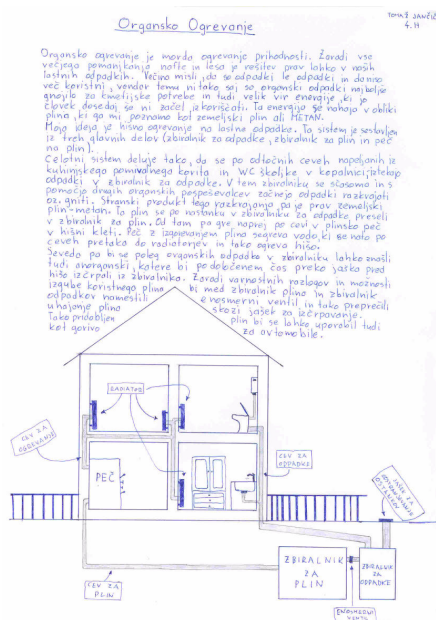 TOMAŽ JANČIČ
4.H
Organsko Ogrevanje
Organsko ogrevanje je morda ogrevanje prihodnosti. Zaradi vse
večjega pomanjkanja nafte in lesa je rešitev prav lahko v naših
lastnih odpadkih. Večina misli, da so odpadki le odpadki in da niso
več koristni, vendar temu ni tako, saj so organski odpadki najboljše
gnojilo za kmetijske potrebe in tudi velik vir energije, ki jo
človek dosedaj še ni začel izkoriščati. Ta energija se nahaja v obliki
plina, ki ga mi poznamo kot zemeljski plin ali METAN.
Moja ideja je hišno ogrevanje na lastne odpadke. Ta sistem je sestavljen
iz treh glavnih delov (zbiralnik za odpadke, zbiralnik za plin in peč
na plin).
Celotni sistem deluje tako, da se po odtočnih ceveh napeljanih iz
kuhinjskega pomivalnega korita in WC školjke v kopalnici, iztekajo
odpadki v zbiralnik za odpadke. V tem zbiralniku se sčasoma in s
pomočjo dveh organskih pospeševalcev začnejo odpadki razkrajati
oz. gniti. Stranski produkt tega razkrajanja pa je prav zemeljski
plin-metan. Ta plin se po nastanku v zbiralniku za odpadke, preseli
v zbiralnik za plin. Od tam pa gre naprej po cevi v plinsko peč
v hišni kleti. Peč z izgorevanjem plina segreva vodo, ki se nato po
ceveh pretaka do radiatorjev in tako ogreva hišo.
Seveda pa bi se poleg organskih odpadkov v zbiralniku lahko znašli
tudi anorganski, katere bi po določenem času preko jaška pred
hišo izčrpali iz zbiralnika. Zaradi varnostnih razlogov in možnosti
izgube koristnega plina bi med zbiralnik plina in zbiralnik
odpadkov namestili enosmerni ventil in tako preprečili
uhajanje plina skozi jašek za izčrpavanje.
Tako pridobljen plin bi se lahko uporabil tudi
kot gorivo za avtomobile.
RADIATOR
CEV ZA
OGREVANJE
PEČ
CEV ZA
ODPADKE
JAŠEK ZA
ODSTRANJEVANJE
OSTANKOV
CEV ZA
PLIN
ZBIRALNIK
ZA
PLIN
ZBIRALNIK
ZA
ODPADKE
ENOSMERNI
VENTIL